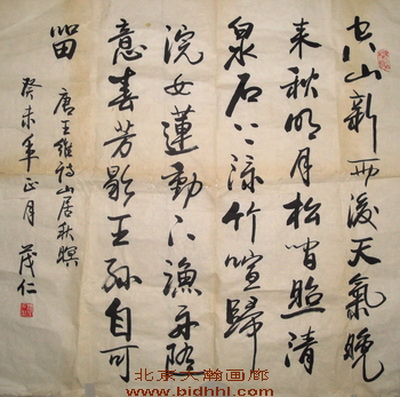 空山新雨後天氣晚
来秋明月松間照清
泉石上流竹喧歸
浣女蓮動下漁舟隨
意春芳歇王孫自可
留
唐王維詩山居秋暝
癸未年正月 茂仁
北京大瀚画廊
www.bidhhl.com